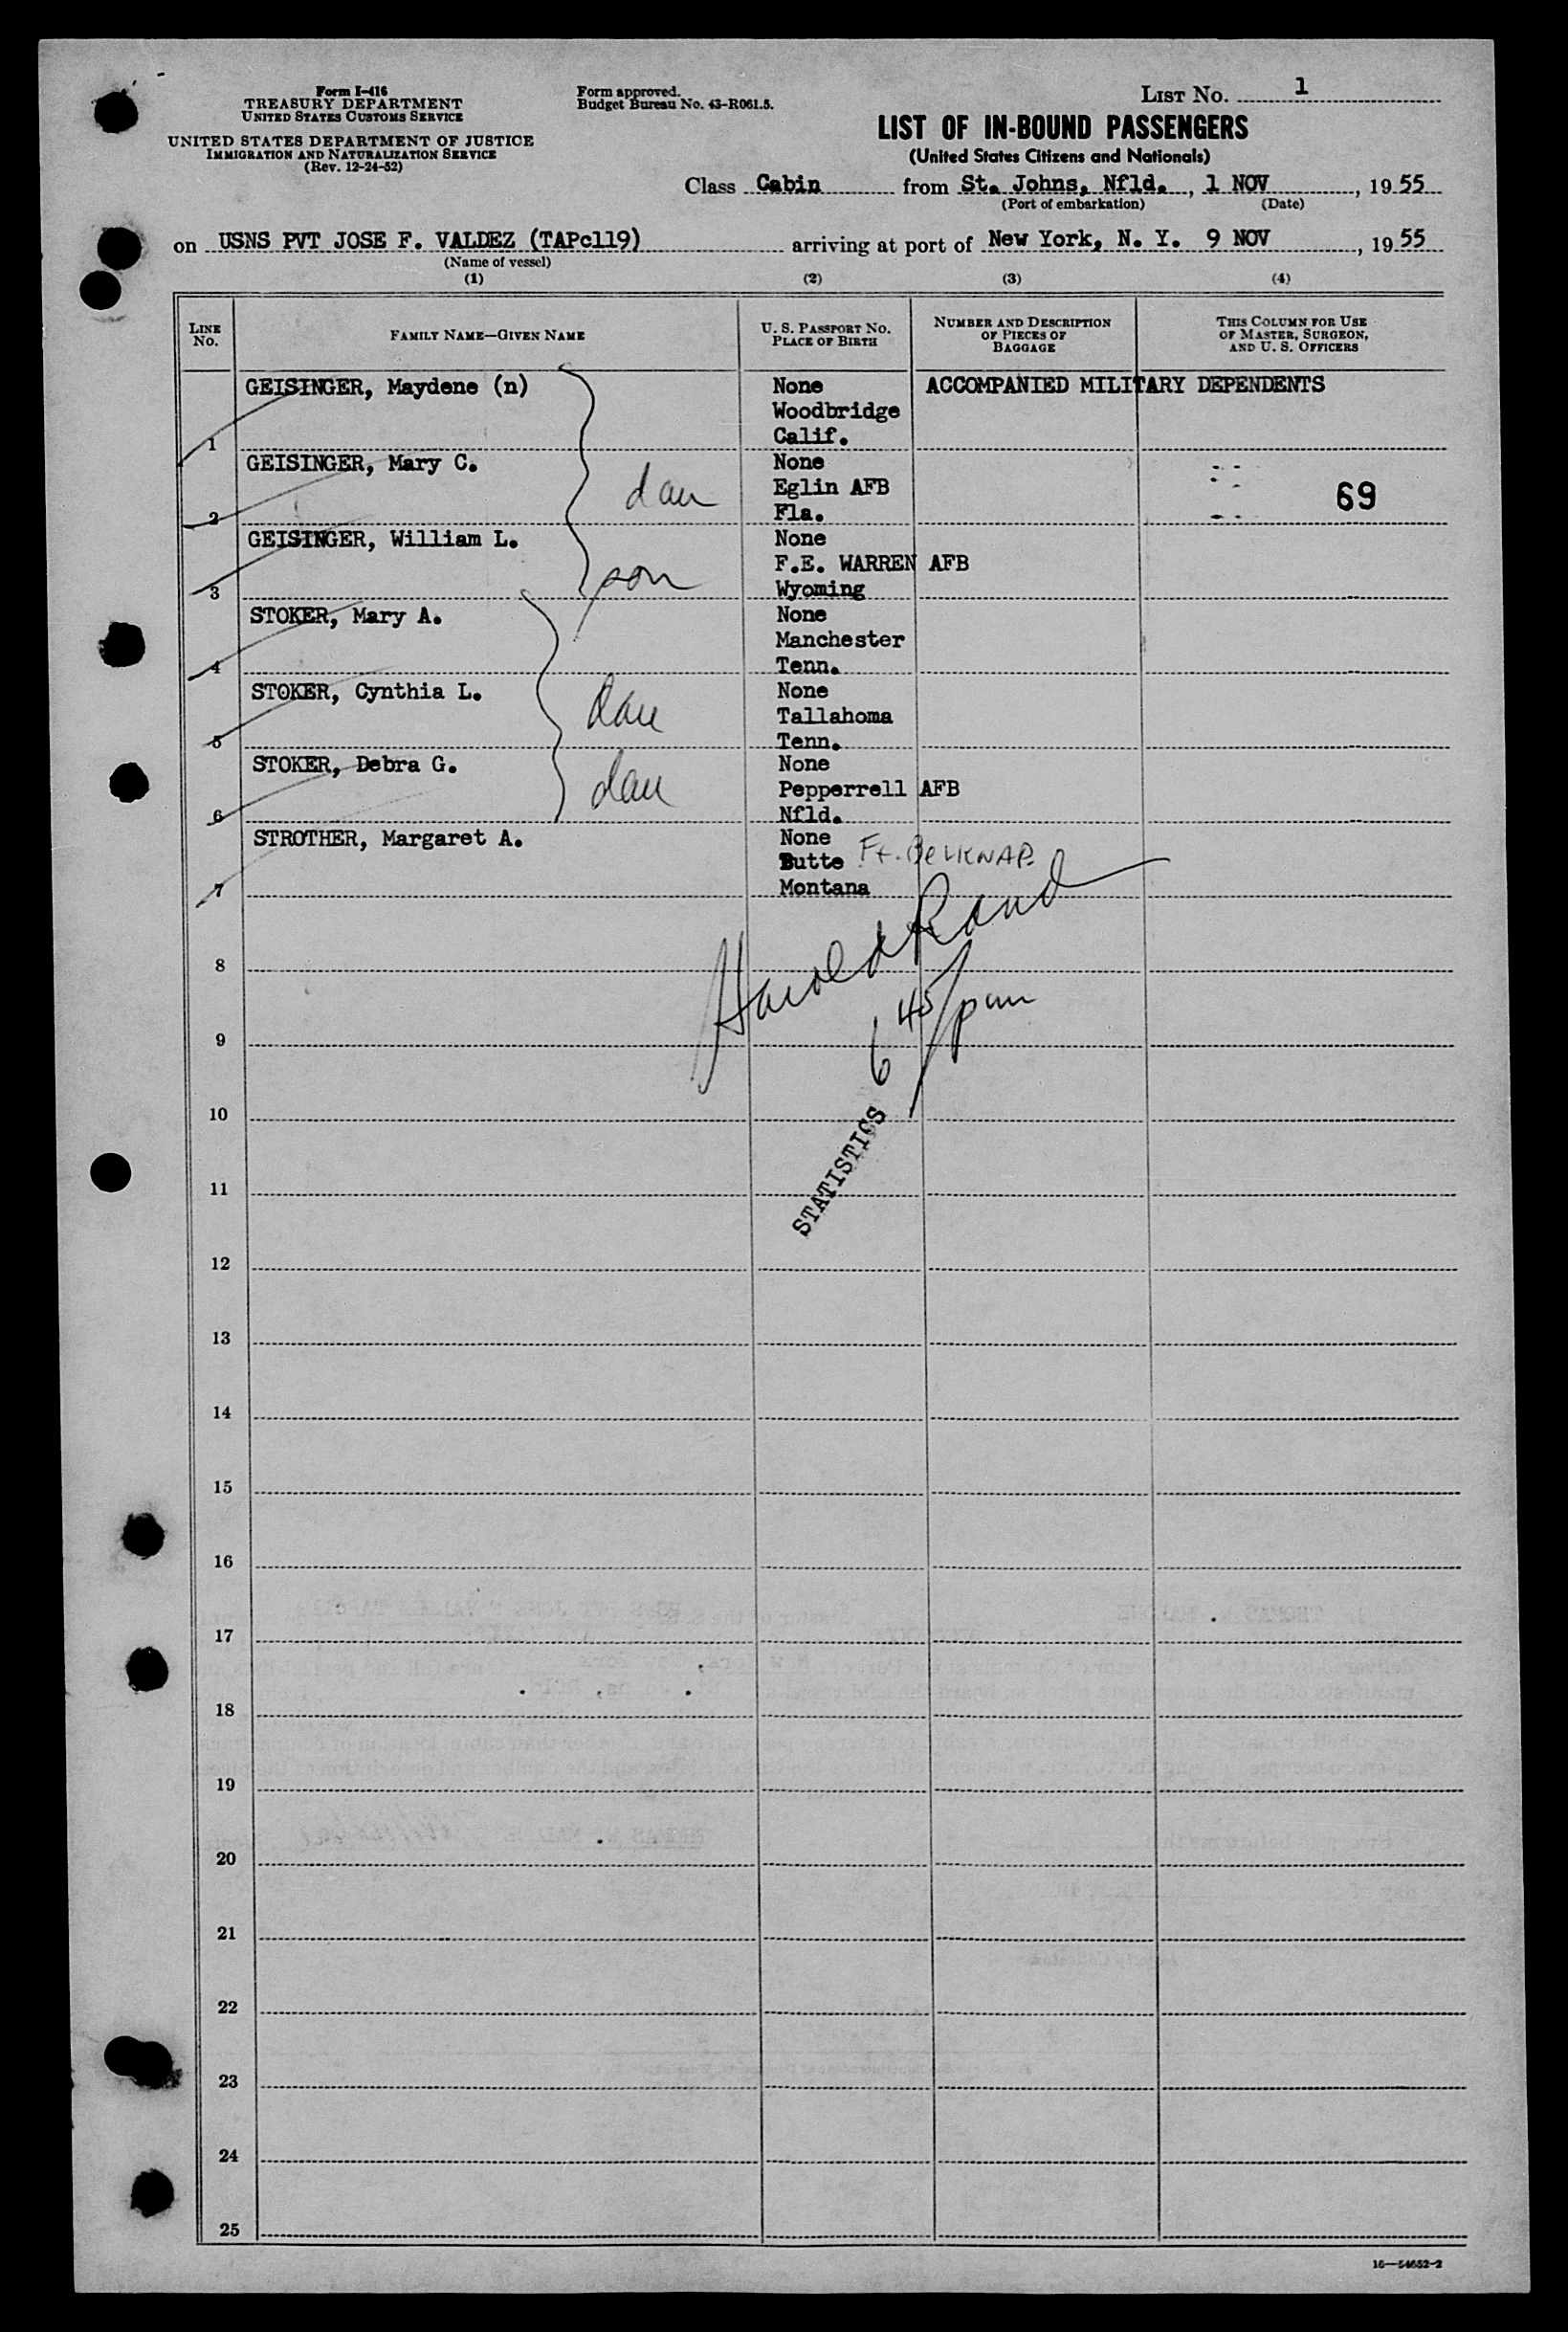 Form I-416
TREASURY DEPARTMENT
UNITED STATES CUSTOMS SERVICE
UNITED STATES DEPARTMENT OF JUSTICE
IMMIGRATION AND NATURALIZATION SERVICE
(Rev. 12-24-52)
Form approved.
Budget Bureau No. 43-R061.5.
LIST NO. 1
LIST OF IN-BOUND PASSENGERS
(United States Citizens and Nationals)
Class Cabin from St. Johns, Nfld., 1 NOV, 1955
(Port of embarkation) (Date)
on USNS PVT JOSE F. VALDEZ (TAPc119) arriving at port of New York, N. Y. 9 NOV, 1955
(Name of vessel)
(1) (2) (3) (4)
LINE NO.
FAMILY NAME—GIVEN NAME
U. S. PASSPORT NO.
PLACE OF BIRTH
NUMBER AND DESCRIPTION
OF PIECES OF
BAGGAGE
THIS COLUMN FOR USE
OF MASTER, SURGEON,
AND U. S. OFFICERS
GEISINGER, Maydene (n) None ACCOMPANIED MILITARY DEPENDENTS
Woodbridge
1 Calif.
GEISINGER, Mary C. dau None
Eglin AFB 69
2 Fla.
GEISINGER, William L. son None
F.E. WARREN AFB
3 Wyoming
STOKER, Mary A. None
Manchester
4 Tenn.
STOKER, Cynthia L. dau None
Tallahoma
5 Tenn.
STOKER, Debra G. dau None
Pepperrell AFB
6 Nfld.
STROTHER, Margaret A. None
Butte Ft. Belknap
7 Montana
Harold Rand
8
6 45/pm
9
10
STATISTICS
11
12
13
14
15
16
17
18
19
20
21
22
23
24
25
16—54652-2